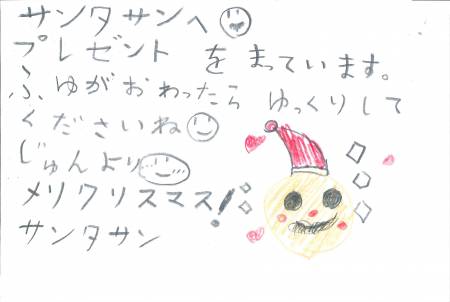 サンタサンへ
プレゼント をまっています。
ふゆがおわったら ゆっくりして
くださいね
じゅんより
メリクリスマス！
サンタサン